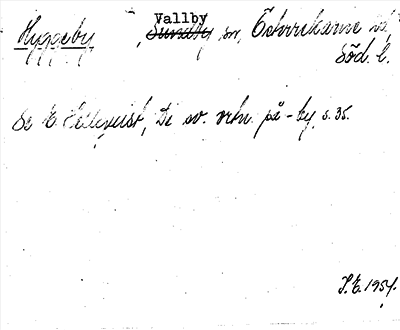 Hyggeby, Vallby ~~Sundby~~ sn, Österrekarne hd,
Söd. l.
Se E. Hellquist, De sv. ortn. på -by, s. 35.
S.E. 1954.